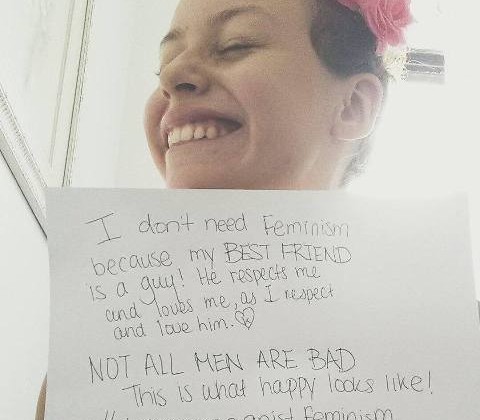 I don't need Feminism
because my BEST FRIEND
is a guy! He respects me
and loves me, as I respect
and love him.
NOT ALL MEN ARE BAD
This is what happy looks like!
Feminism